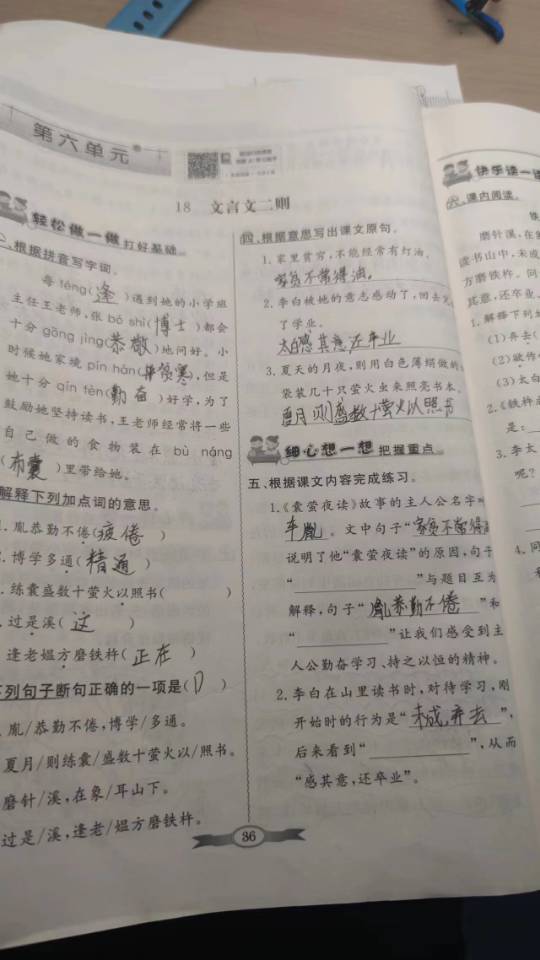 第六单元
18 文言文二则
轻松做一做 打好基础
一、根据拼音写字词。
每 féng(逢)遇到她的小学班
主任王老师,张 bó shì(博士)都会
十分 gōng jìng(恭敬)地问好。小
时候她家境 pín hán(寒),但是
她十分 qín fèn(勤奋)好学,为了
鼓励她坚持读书,王老师经常将一些
自己做的食物装在 bù náng
(布囊)里带给她。
解释下列加点词的意思。
胤恭勤不倦(疲倦)
博学多通(精通)
练囊盛数十萤火以照书( )
过是溪(这)
逢老媪方磨铁杵(正在)
下列句子断句正确的一项是(D)
胤/恭勤不倦,博学/多通。
夏月/则练囊/盛数十萤火以/照书。
磨针/溪,在象/耳山下。
过是/溪,逢老/媪方磨铁杵。
四、根据意思写出课文原句。
1.家里贫穷,不能经常有灯油。
家贫不常得油。
2.李白被她的意志感动了,回去完
了学业。
太白感其意还卒业
3.夏天的月夜,则用白色薄绢做的
袋装几十只萤火虫来照亮书本。
夏月则盛数十萤火以照书
细心想一想 把握重点
五、根据课文内容完成练习。
1.《囊萤夜读》故事的主人公名字叫
车胤。文中句子“家贫不常得
说明了他“囊萤夜读”的原因,句子
“ ”与题目互为
解释,句子“胤恭勤不倦”和
“ ”让我们感受到主
人公勤奋学习、持之以恒的精神。
2.李白在山里读书时,对待学习,刚
开始时的行为是“未成,弃去”,
后来看到“ ”,从而
“感其意,还卒业”。
36
快乐读一读
六、课内阅读。
磨针溪,在
读书山中,未成
方磨铁杵。问
其意,还卒业
1.解释下列
(1)弃去(
(2)欲作
(3)太白
2.《铁杵
是:
3.李太
呢?
4.同